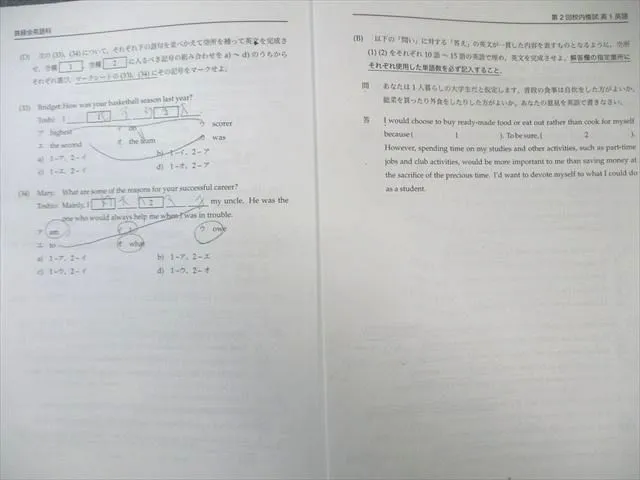 鉄緑会英語科
(D) 次の(33), (34)について, それぞれ下の語句を並べかえて空所を補って英文を完成さ
せ, 空欄 1 , 空欄 2 に入るべき記号の組み合わせを a) ~ d) のうちから
それぞれ選び, マークシートの(33), (34)にその記号をマークせよ。
(33) Bridget: How was your basketball season last year?
Toshi: I
scorer
ア highest イ on ウ
エ the second オ the team was
a) 1-ア, 2-イ b) 1-イ, 2-ア
c) 1-エ, 2-イ d) 1-オ, 2-ア
(34) Mary: What are some of the reasons for your successful career?
Toshio: Mainly, I 1 2 my uncle. He was the
one who would always help me when I was in trouble.
ア am イ I ウ owe
エ to オ what
a) 1-ア, 2-イ b) 1-ア, 2-エ
c) 1-ウ, 2-イ d) 1-ウ, 2-オ
第2回校内模試 高1英語
(B) 以下の「問い」に対する「答え」の英文が一貫した内容を表すものとなるように, 空所
(1) (2) をそれぞれ 10 語 ~ 15 語の英語で埋め, 英文を完成させよ。解答欄の指定箇所に
それぞれ使用した単語数を必ず記入すること。
問 あなたは1人暮らしの大学生だと仮定します。普段の食事は自炊をした方がよいか,
総菜を買ったり外食をしたりした方がよいか, あなたの意見を英語で書きなさい。
答 I would choose to buy ready-made food or eat out rather than cook for myself
because ( 1 ). To be sure, ( 2 ).
However, spending time on my studies and other activities, such as part-time
jobs and club activities, would be more important to me than saving money at
the sacrifice of the precious time. I'd want to devote myself to what I could do
as a student.